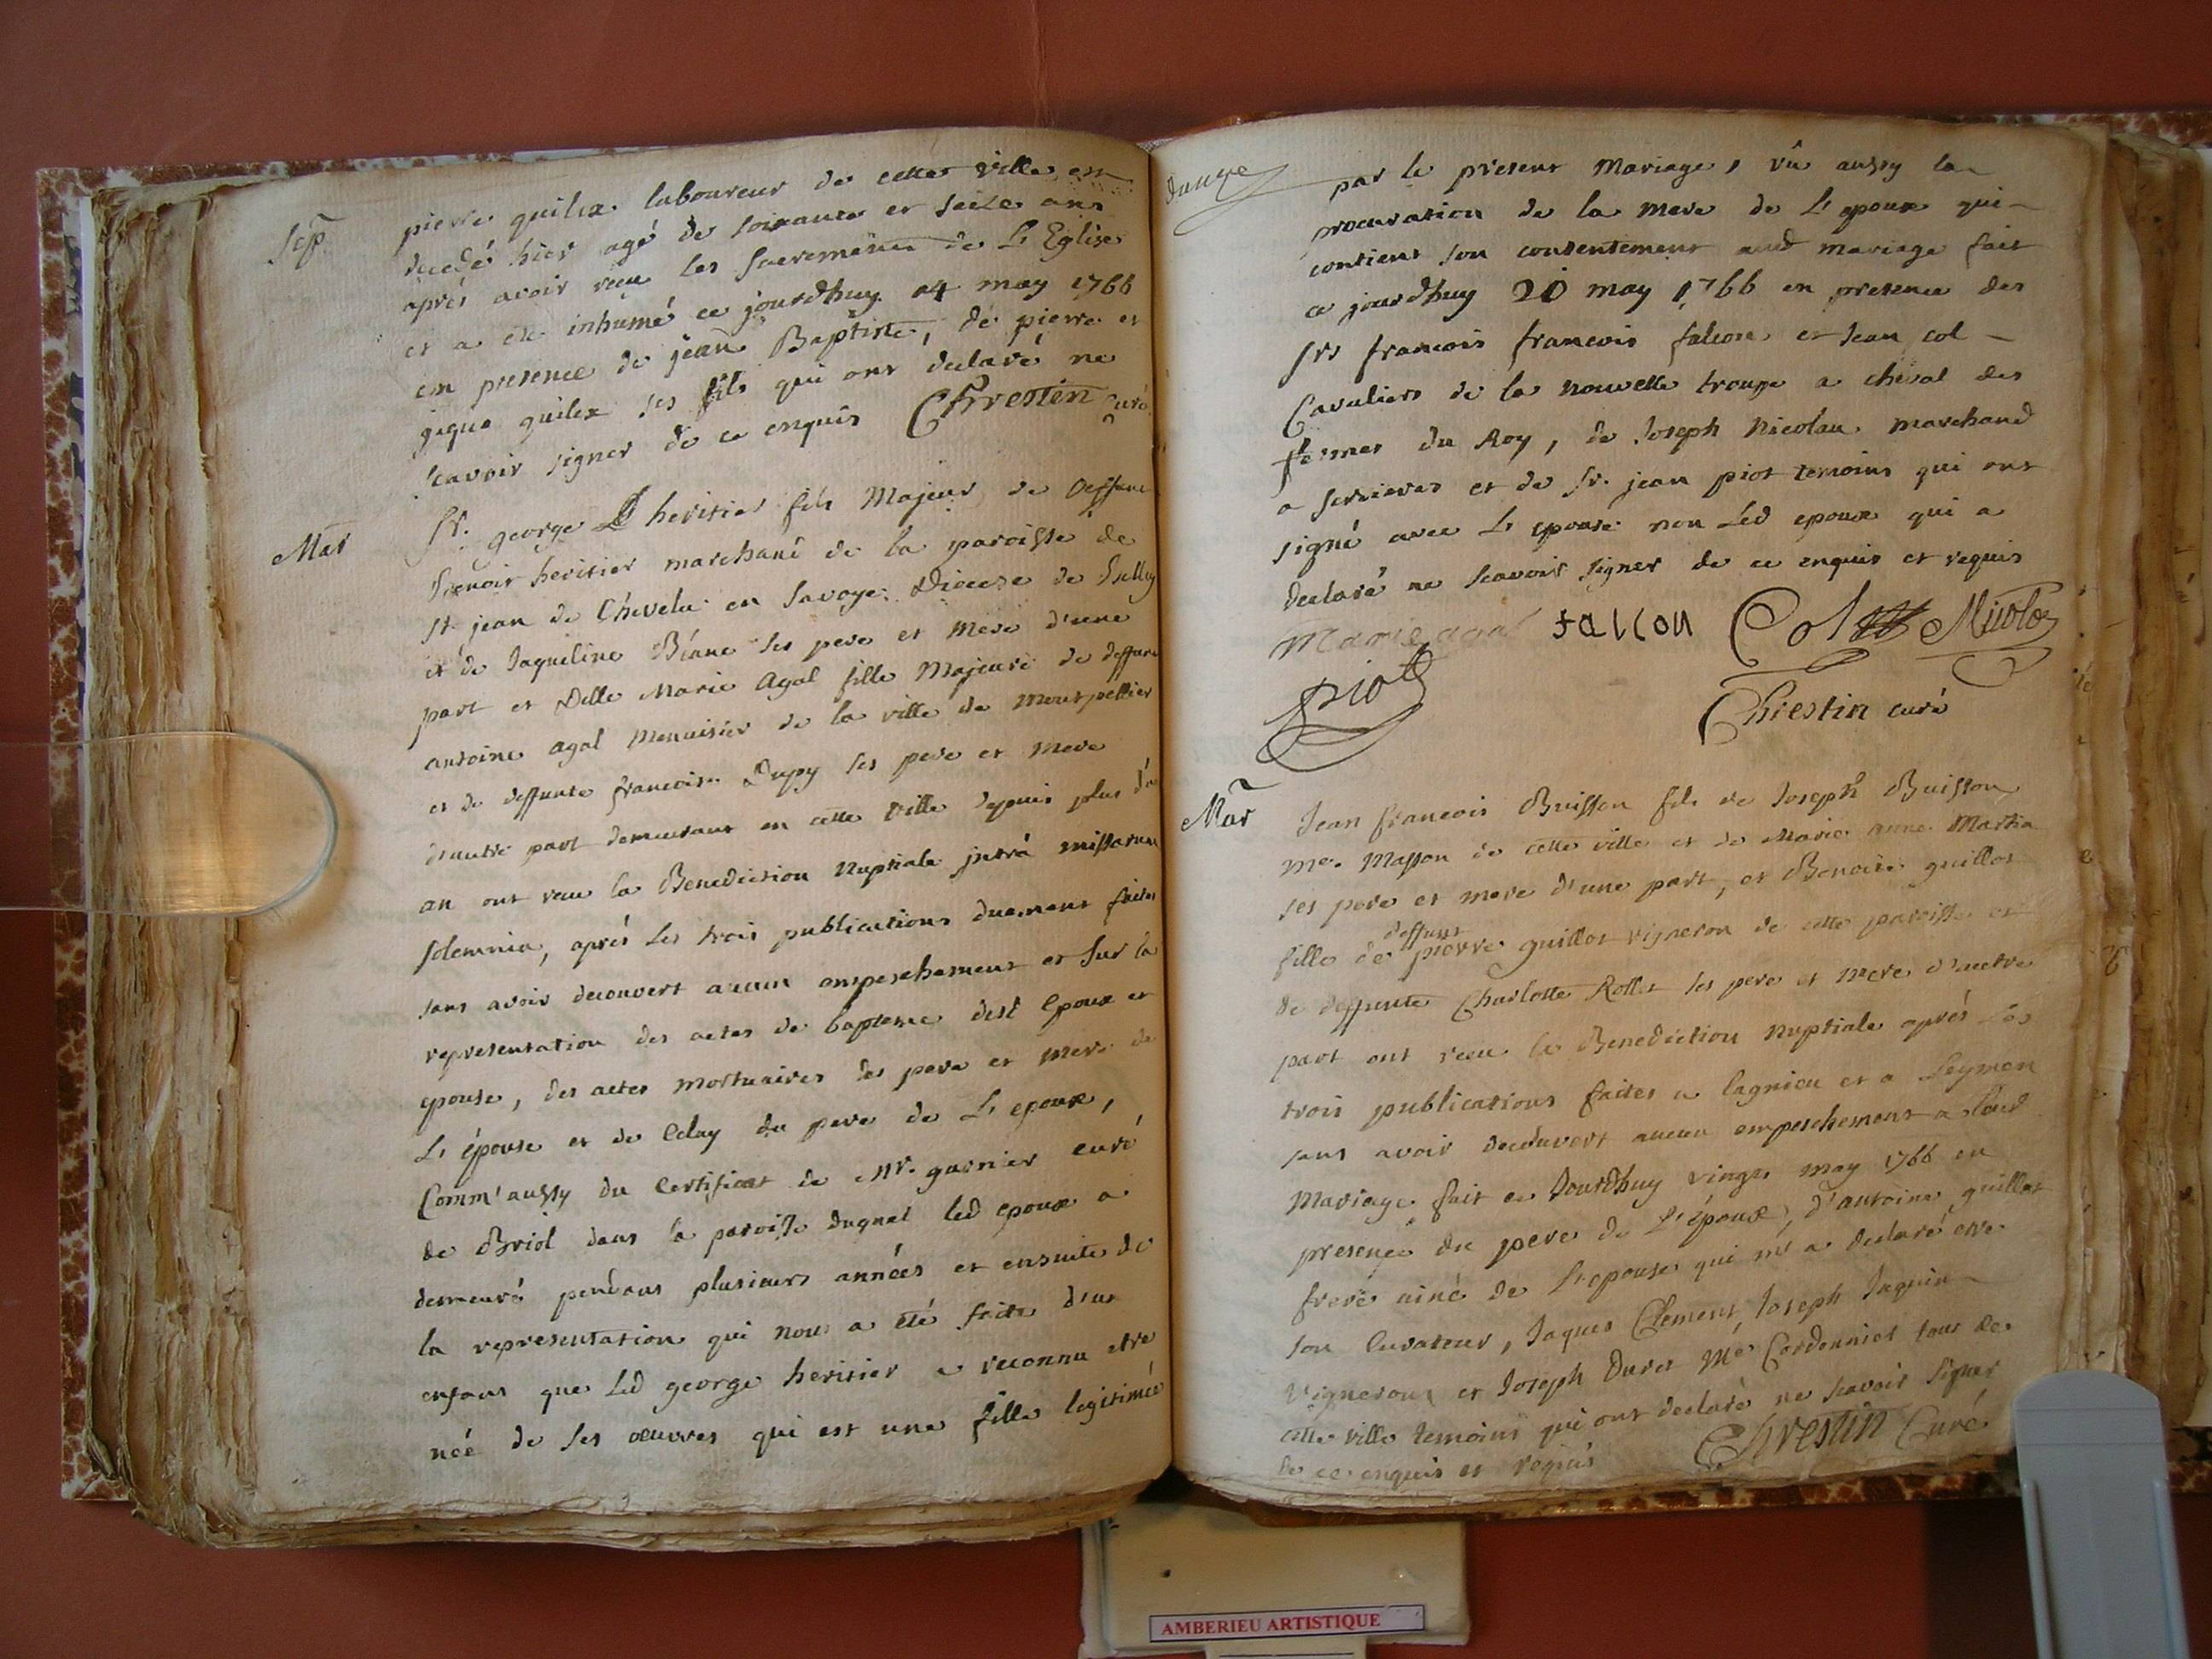 Sep.
pierre guilex laboureur de cette ville est
decedé hier agé de soixante et seize ans
aprés avoir reçu les sacrements de L'Eglise
et a eté inhumé ce jourdhuy 04 may 1766
en presence de jean Baptiste, de pierre et
guilex ses fils qui ont declaré ne
scavoir signer de ce enquis Chrestin Curé
Mar
Sr. george L'heritier fils Majeur de deffunt
Benoit heritier marchand de la paroisse de
St. jean de Chevelu en Savoye Diocese de Belley
et de Jaqueline Béane ses pere et Mere d'une
part et Delle Marie Agal fille Majeure de deffunt
antoine agal Menuisier de la ville de Montpellier
et de deffunte francoise Dupy ses pere et mere
d'autre part demeurant en cette ville depuis plus d'un
an ont recu la Benediction Nuptiale intrà missarum
solemnia, aprés les trois publications duement faites
sans avoir decouvert aucun empeschement et sur la
representation des actes de baptesme desd epoux et
epouse, des actes mortuaires des pere et mere de
L'épouse et de Celuy du pere de L'epoux,
Comm'aussy du Certificat de Mr. garnier curé
de Briol dans la paroisse duquel led epoux a
demeuré pendant plusieurs années et ensuite de
la representation qui nous a été faite d'un
enfant que led george heritier a reconnu etre
née de ses oeuvres qui est une fille legitimée
par le present Mariage, vû aussy la
procuration de la mere de L'epoux qui
contient son consentement aud mariage fait
ce jourdhuy 20 may 1766 en presence des
Srs francois francois falcon et Jean col
Cavaliers de la nouvelle troupe a cheval des
fermes du Roy, de Joseph Nicolau marchand
a serrieres et de Sr. jean piot temoins qui ont
signé avec L'epouse non Led epoux qui a
declaré ne scavoir signer de ce enquis et requis
Marie agal falcon Col Nicola
piot
Chrestin curé
Mar
Jean francois Buisson fils de Joseph Buisson
me. Masson de cette ville et de Marie anne Martin
ses pere et mere d'une part, et Benoite guillot
fille de deffunt pierre guillot vigneron de cette paroisse et
de deffunte Charlotte Rollet ses pere et mere d'autre
part ont reçu la Benediction Nuptiale aprés Les
trois publications faites a lagnieu et a Leymen
sans avoir decouvert aucun empeschement a leurd
Mariage fait ce Jourdhuy vingt may 1766 en
presence du pere de L'époux, d'antoine guillot
frere ainé de L'epouse qui m'a declaré etre
son Curateur, Jaques Clement, Joseph Jaquin
vignerons et Joseph Duret Me Cordonnier tous de
cette ville temoins qui ont declaré ne scavoir signer
de ce enquis et requis Chrestin Curé
AMBERIEU ARTISTIQUE